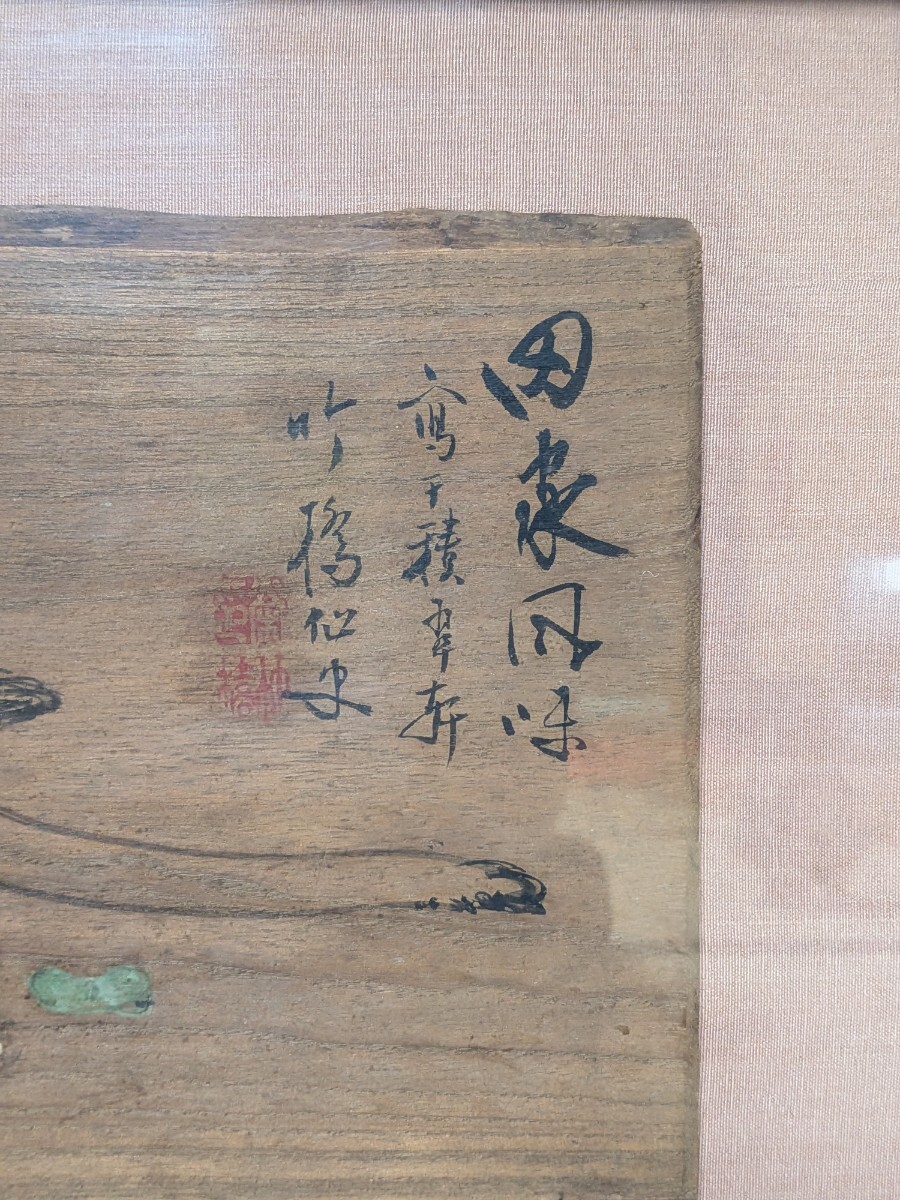 田家風味
寫于積翠軒
竹橋仙史